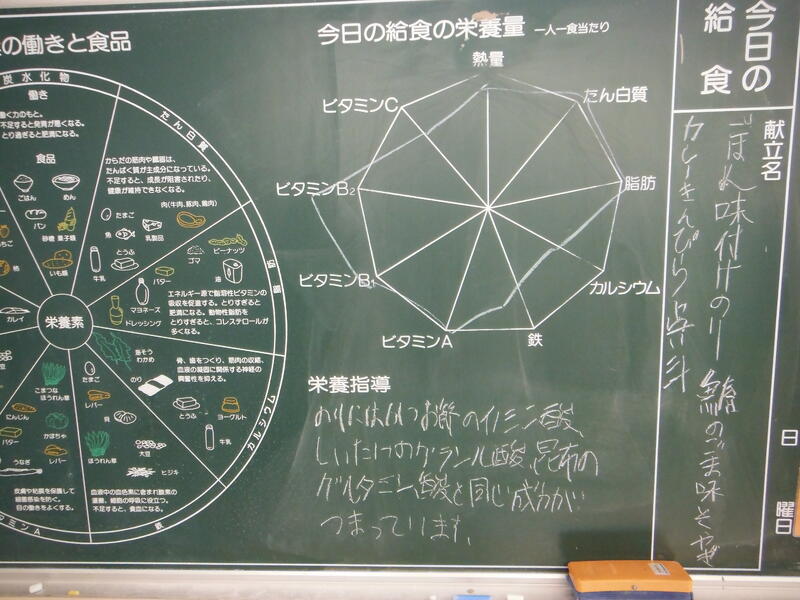 の働きと食品
炭水化物
働き
働く力のもと。
不足すると発育が悪くなる。
とり過ぎると肥満になる。
食品
ごはん
めん
パン
砂糖 菓子類
いも類
たん白質
からだの筋肉や臓器は、
たんぱく質が主成分になっている。
不足すると、成長が阻害されたり、
健康が維持できなくなる。
肉(牛肉、豚肉、鶏肉)
たまご
魚
乳製品
とうふ
牛乳
脂肪
ピーナッツ
ゴマ
油
バター
マヨネーズ
ドレッシング
エネルギー源で脂溶性ビタミンの
吸収を促進する。とりすぎると
肥満になる。動物性脂肪を
とりすぎると、コレステロールが
多くなる。
栄養素
カレイ
カルシウム
海そう
わかめ
のり
骨、歯をつくり、筋肉の収縮、
血液の凝固に関係する神経の
興奮性を抑える。
とうふ
ヨーグルト
牛乳
鉄
たまご
レバー
貝
ほうれん草
大豆
ヒジキ
血液中の血色素に含まれ酸素の
運搬、細胞の呼吸に役立つ。
不足すると、貧血になる。
ビタミンA
こまつな
ほうれん草
にんじん
かぼちゃ
バター
レバー
うなぎ
皮膚や粘膜を保護して
細菌感染を防ぐ。
目の働きをよくする。
今日の給食の栄養量 一人一食当たり
熱量
たん白質
脂肪
カルシウム
鉄
ビタミンA
ビタミンB1
ビタミンB2
ビタミンC
栄養指導
のりにはかつお節のイノシン酸
しいたけのグアニル酸、昆布の
グルタミン酸と同じ成分が
つまっています。
今日の給食
献立名
ごはん 味付けのり 鯖のごま味そやき
カレーきんぴら 呉汁
日
曜日